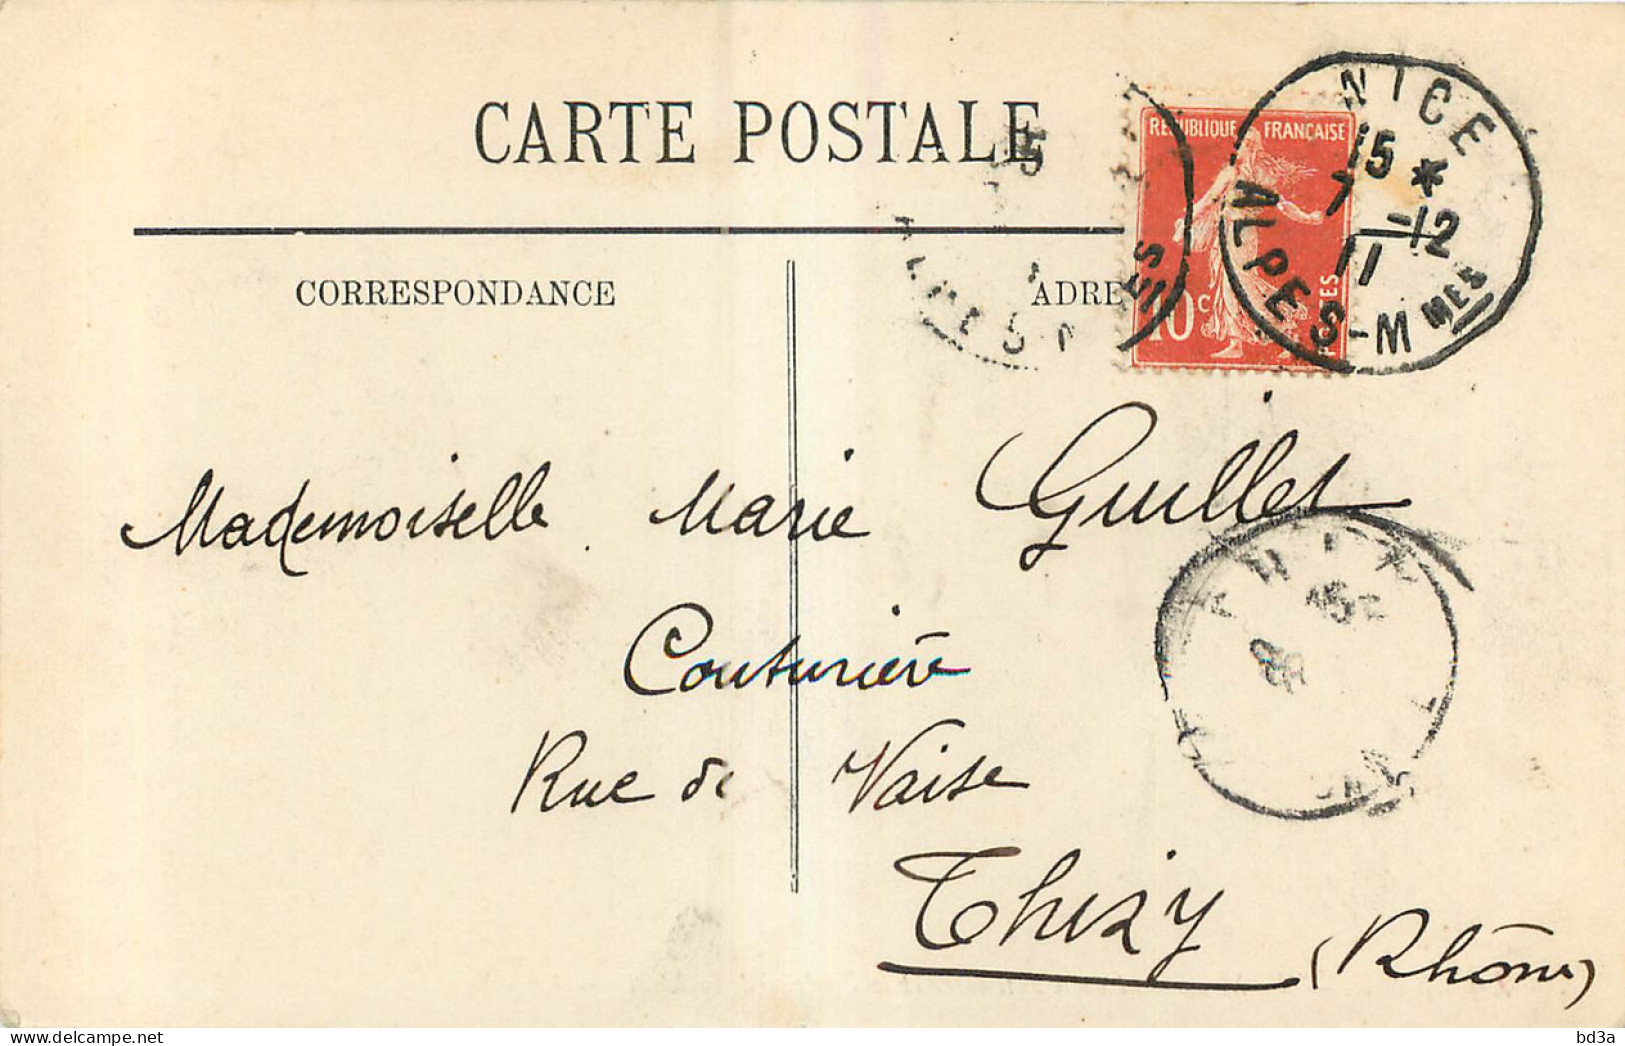 CARTE POSTALE
REPUBLIQUE FRANÇAISE
10c
POSTES
NICE
15 *
7 -12
11
ALPES-MMES
CORRESPONDANCE
ADRE
Mademoiselle Marie Guillet
Couturière
Rue de Vaise
Thizy (Rhône)
bd3a